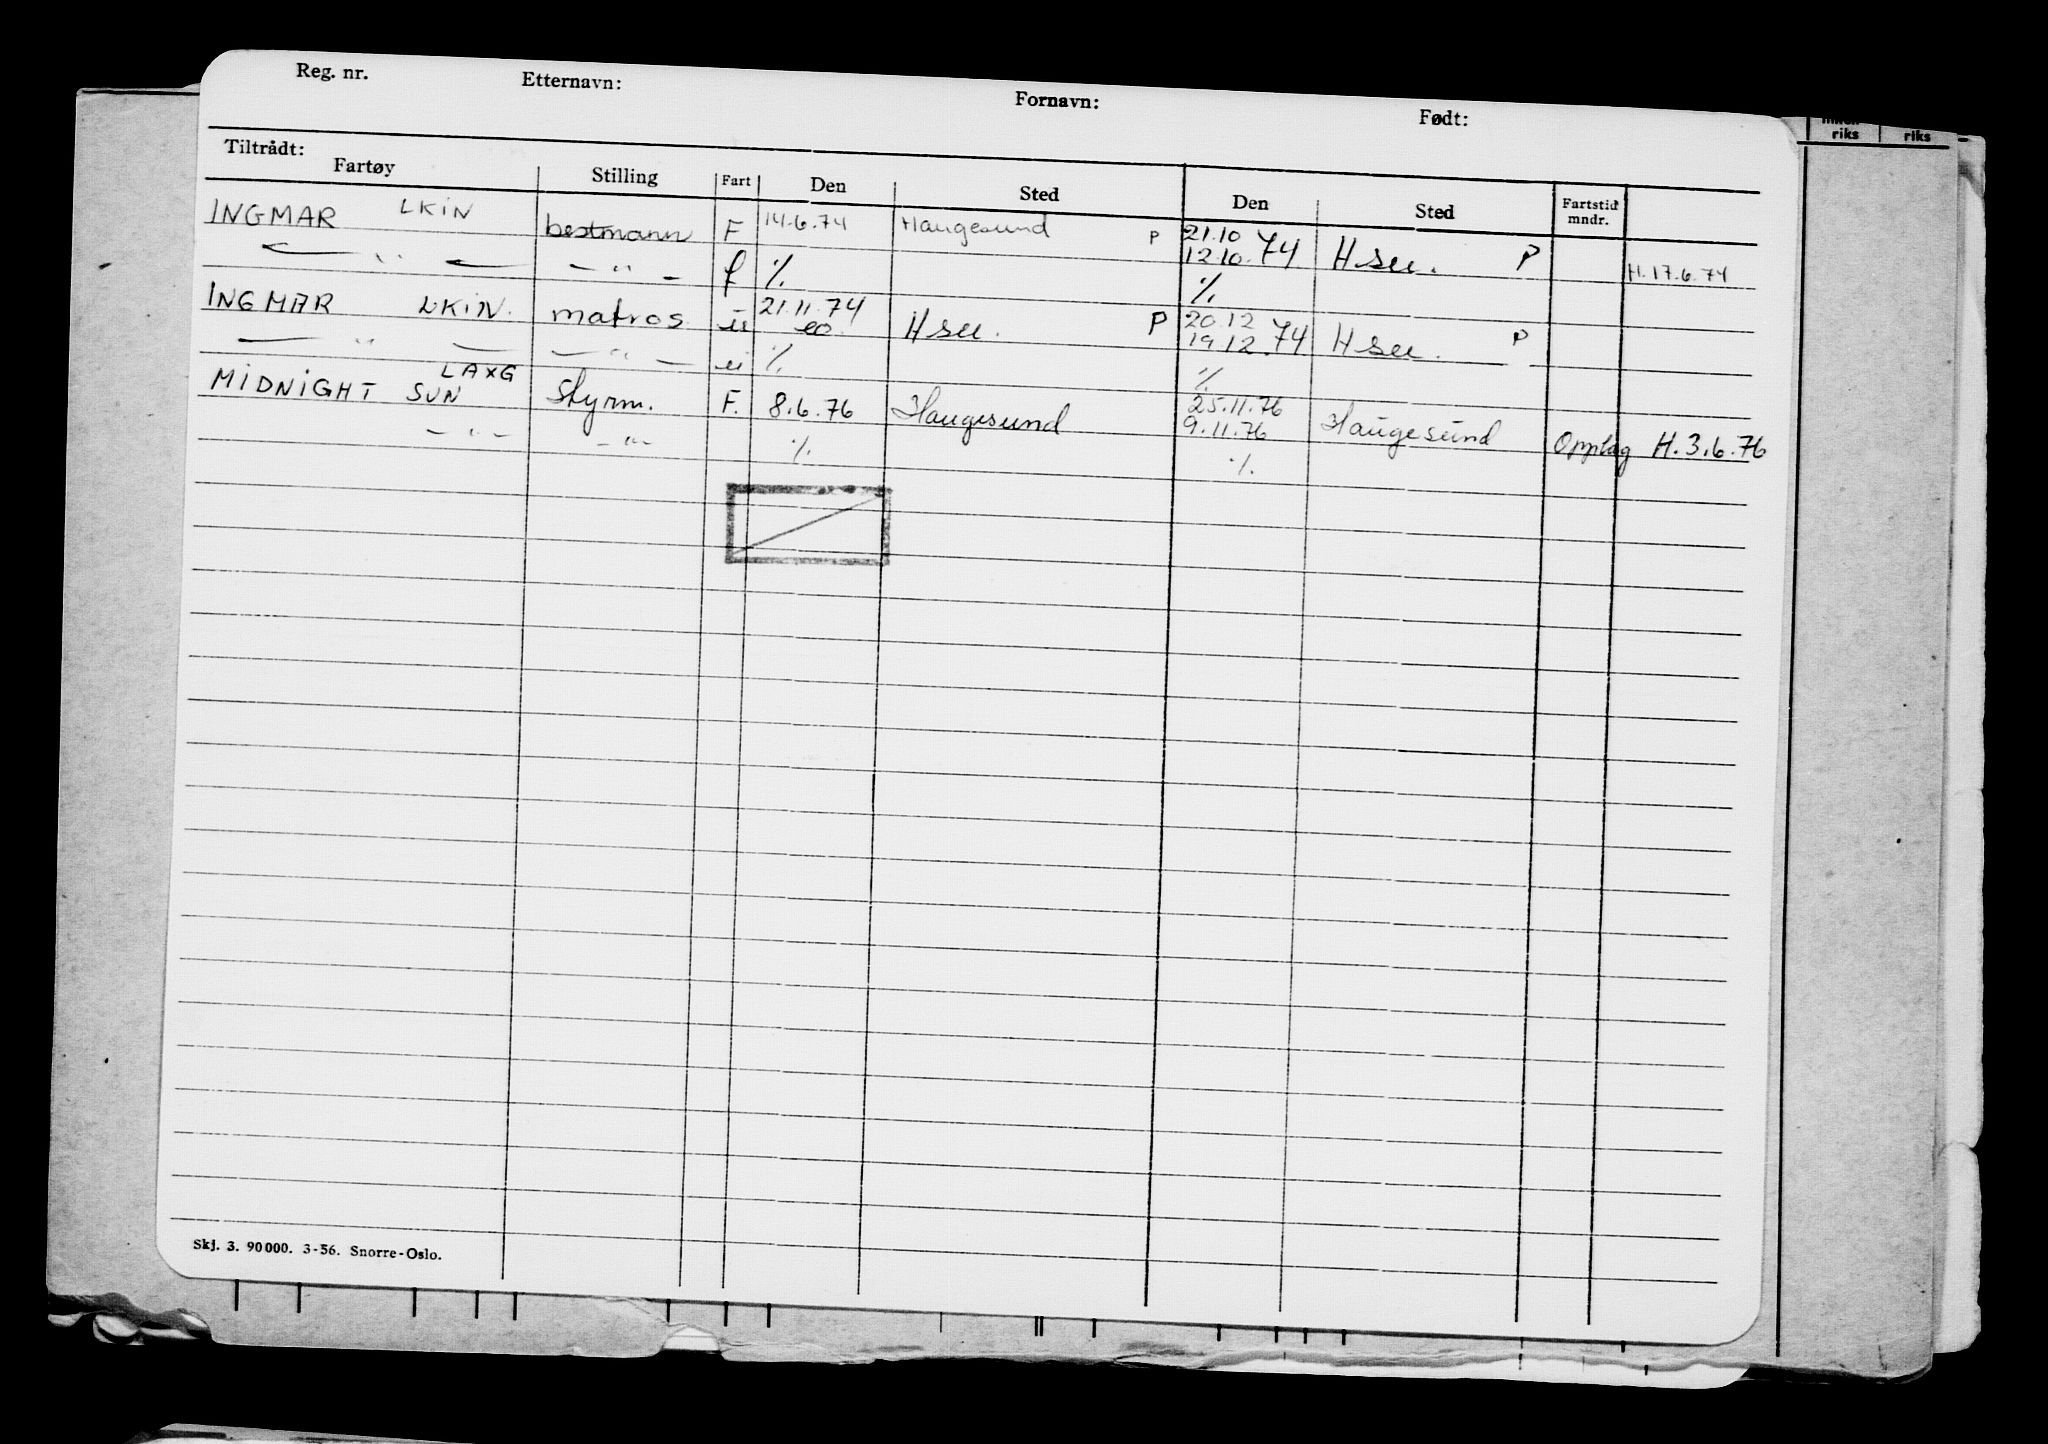 Reg. nr. Etternavn: Fornavn: Født:
riks riks
Tiltrådt:
Fartøy Stilling Fart Den Sted Den Sted Fartstid mndr.
INGMAR LKIN bestmann F 14.6.74 Haugesund P 21.10 12.10.74 H.su. P H.17.6.74
— " — - " - f ./. ./.
INGMAR LKIN. matros 21.11.74 H su. P 20.12 19.12.74 H su. P
— " — — " — ./. ./.
MIDNIGHT SUN LAXG Styrm. F. 8.6.76 Haugesund 25.11.76 9.11.76 Haugesund Opplag H.3.6.76
- " - - " - ./. ./.
Skj. 3. 90000. 3-56. Snorre-Oslo.